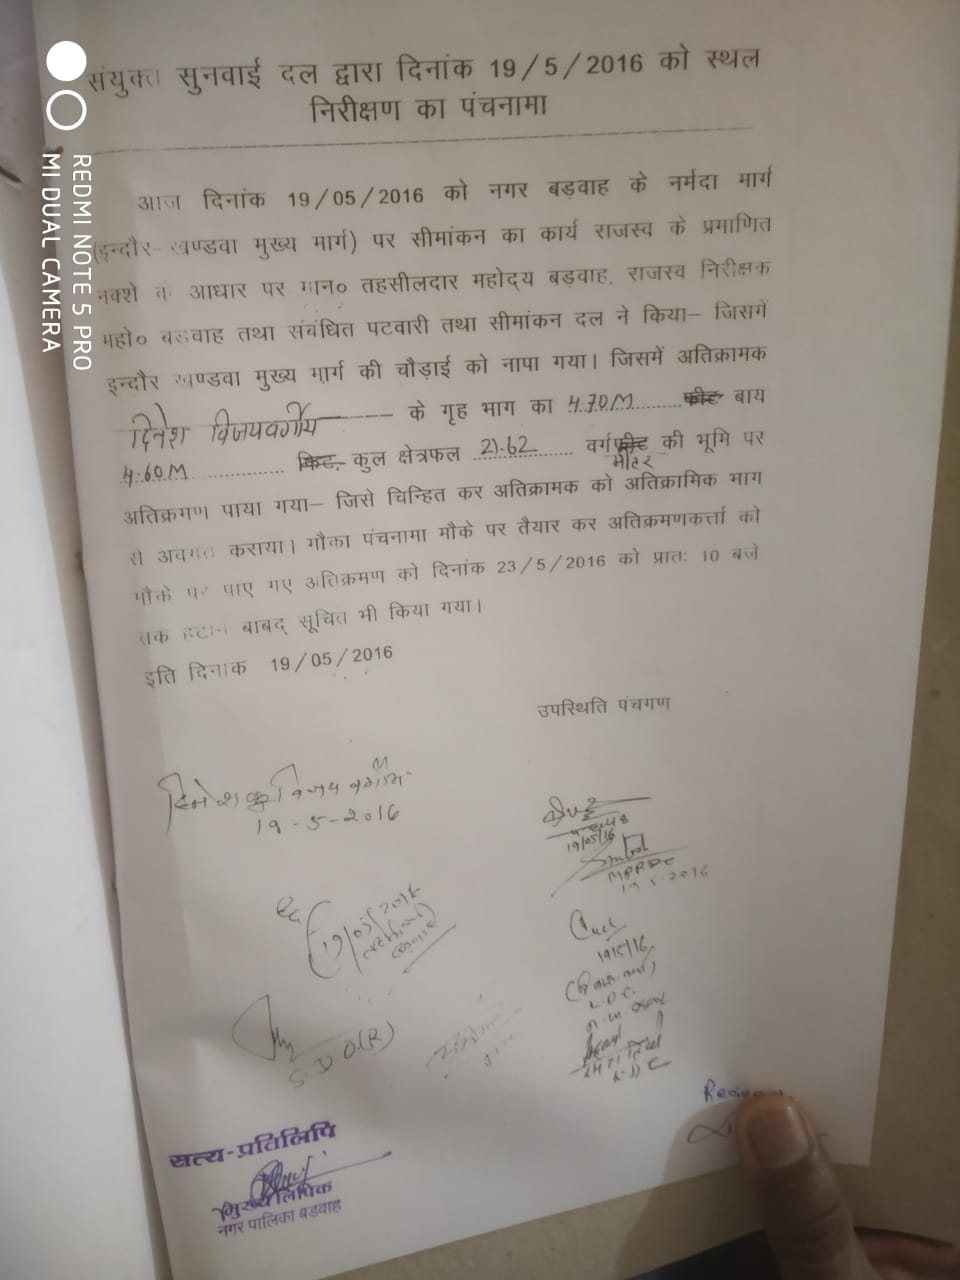 संयुक्त सुनवाई दल द्वारा दिनांक 19/5/2016 को स्थल
निरीक्षण का पंचनामा
आज दिनांक 19/05/2016 को नगर बड़वाह के नर्मदा मार्ग
(इन्दौर- खण्डवा मुख्य मार्ग) पर सीमांकन का कार्य राजस्व के प्रमाणित
नक्शे के आधार पर मान० तहसीलदार महोद्य बड़वाह, राजस्व निरीक्षक
महो० बड़वाह तथा संबंधित पटवारी तथा सीमांकन दल ने किया– जिसमें
इन्दौर खण्डवा मुख्य मार्ग की चौड़ाई को नापा गया। जिसमें अतिक्रामक
दिनेश विजयवर्गीय के गृह भाग का 4.70M फीट बाय
4.60M फिट, कुल क्षेत्रफल 21.62 वर्ग फीट की भूमि पर
मीटर
अतिक्रमण पाया गया– जिसे चिन्हित कर अतिक्रामक को अतिक्रामिक भाग
से अवगत कराया। मौका पंचनामा मौके पर तैयार कर अतिक्रमणकर्त्ता को
मौके पर पाए गए अतिक्रमण को दिनांक 23/5/2016 को प्रातः 10 बजे
तक हटाने बाबद् सूचित भी किया गया।
इति दिनाक 19/05/2016
उपस्थिति पंचगण
19-5-2016
19/05/16
MPRDC
19.5.2016
19/05/2016
19/5/16
L.D.C.
S.D.O.(R)
सत्य-प्रतिलिपि
मुख्य लिपिक
नगर पालिका बड़वाह
REDMI NOTE 5 PRO
MI DUAL CAMERA